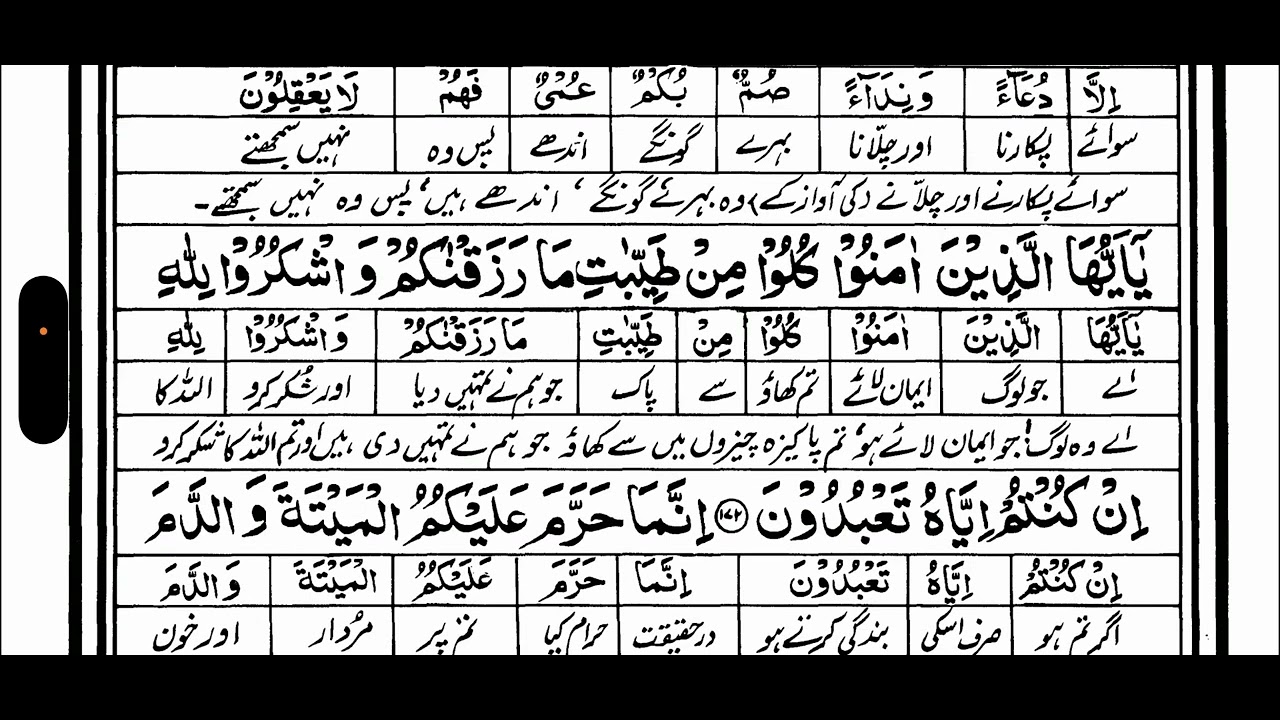 اِلَّا دُعَآءً وَّنِدَآءً صُمٌّۢ بُكْمٌ عُمْیٌ فَهُمْ لَا یَعْقِلُوْنَ
سوائے پکارنا اور چلّانا بہرے گونگے اندھے پس وہ نہیں سمجھتے
سوائے پکارنے اور چلّانے (کی آواز کے) وہ بہرے گونگے ‘ اندھے ہیں‘ پس وہ نہیں سمجھتے۔
یٰۤاَیُّهَا الَّذِیْنَ اٰمَنُوْا كُلُوْا مِنْ طَیِّبٰتِ مَا رَزَقْنٰكُمْ وَ اشْكُرُوْا لِلّٰهِ
یٰۤاَیُّهَا الَّذِیْنَ اٰمَنُوْا كُلُوْا مِنْ طَیِّبٰتِ مَا رَزَقْنٰكُمْ وَ اشْكُرُوْا لِلّٰهِ
اے جو لوگ ایمان لائے تم کھاؤ سے پاک جو ہم نے تمہیں دیا اور شکر کرو اللہ کا
اے وہ لوگ! جو ایمان لائے ہو‘ تم پاکیزہ چیزوں میں سے کھاؤ جو ہم نے تمہیں دی ہیں اور تم اللہ کا شکر کرو
اِنْ كُنْتُمْ اِیَّاهُ تَعْبُدُوْنَ ۝۱۷۲ اِنَّمَا حَرَّمَ عَلَیْكُمُ الْمَیْتَةَ وَ الدَّمَ
اِنْ كُنْتُمْ اِیَّاهُ تَعْبُدُوْنَ اِنَّمَا حَرَّمَ عَلَیْكُمُ الْمَیْتَةَ وَ الدَّمَ
اگر تم ہو صرف اسکی بندگی کرتے ہو درحقیقت حرام کیا تم پر مُردار اور خون